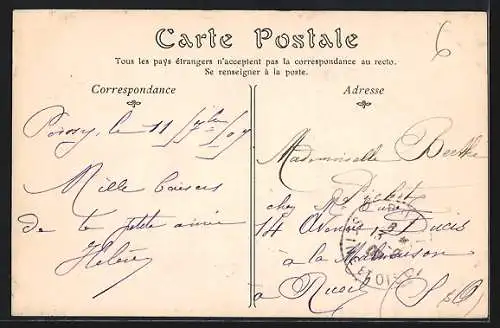 Carte Postale
Tous les pays étrangers n'acceptent pas la correspondance au recto.
Se renseigner à la poste.
6
Correspondance
le 11 7bre 07
Mille baisers
de ta petite amie
Hélène
Adresse
Mademoiselle Berthe
chez Mr
14 Avenue Ducis
à la Malmaison
à Rueil (S & O)